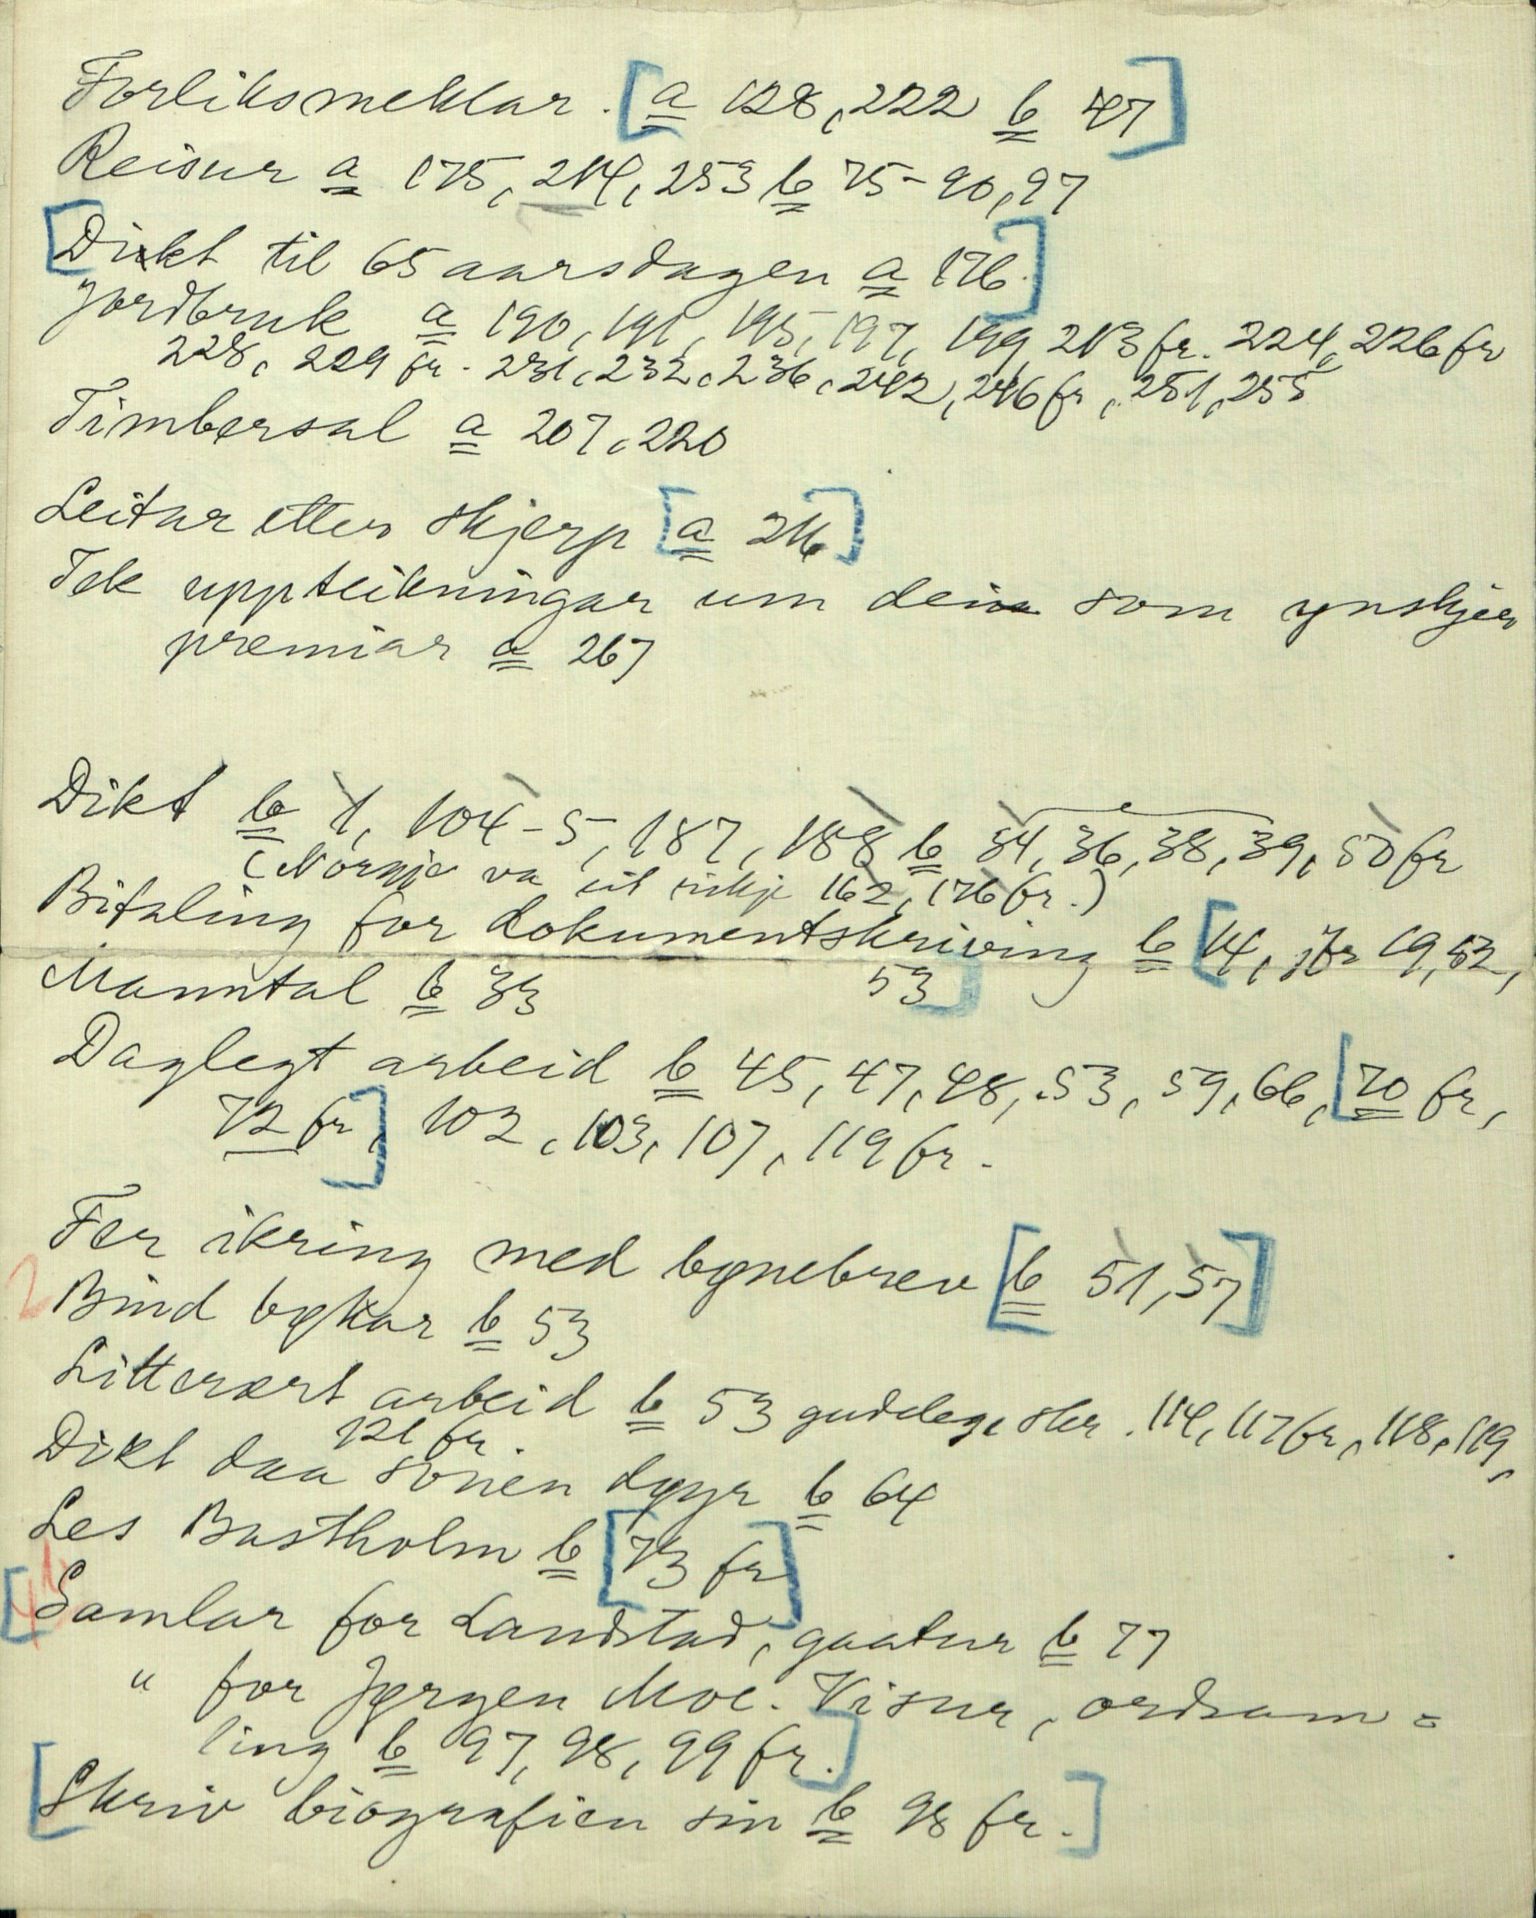 Forliksmeklar. [a 128, 222 b 47]
Reisur a 175, 214, 253 b 75-90, 97
[Dikt til 65 aarsdagen a 176.]
Jordbruk a 190, 191, 195, 197, 199, 213 fr. 224, 226 fr
228, 229 fr. 231, 232, 236, 242, 246 fr, 251, 255
Timbersal a 207, 220
Leitar etter skjerp [a 216]
Tek uppteikningar um dei som ynskjer
premiar a 267
Dikt b 1, 104-5, 187, 188 b 34, 36, 38, 39, 50 fr
(Norigje va eit rikje 162, 176 fr.)
Bitaling for dokumentskriving b [14, jfr 19, 52,
53]
Manntal b 33
Daglegt arbeid b 45, 47, 48, 53, 59, 66, [70 fr,
72 fr], 102, 103, 107, 119 fr.
Fer ikring med bønebrev [b 51, 57]
2 Bind bøkar b 53
Litterært arbeid b 53 gudeleg skr. 114, 117 fr, 118, 119,
121 fr.
Dikt daa sonen døyr b 64
Les Bastholm b [73 fr]
[Samlar for Landstad, gaatur b 77
" for Jørgen Moe. Visur, ordsam=
ling b 97, 98, 99 fr.]
[Skriv biografien sin b 98 fr.]